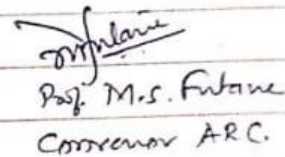 Prof. M.S. Futane
Convenor ARC.